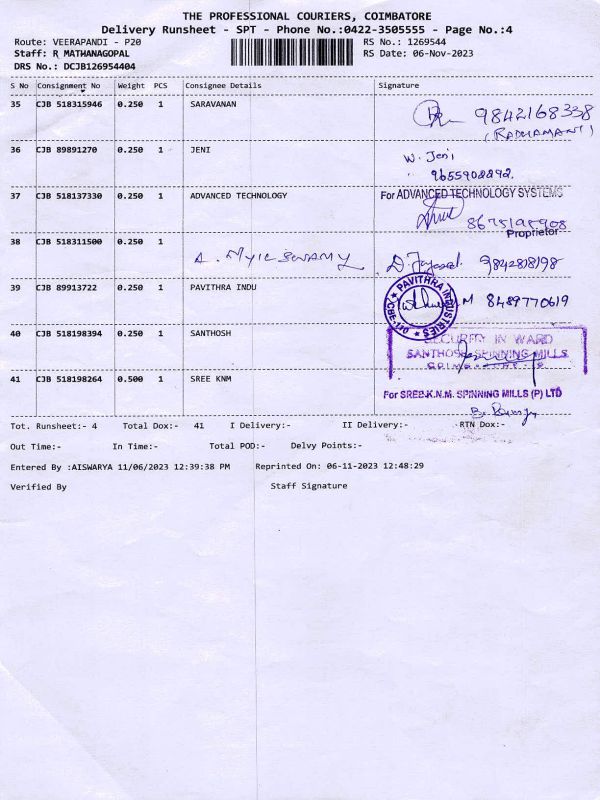 THE PROFESSIONAL COURIERS, COIMBATORE
Delivery Runsheet - SPT - Phone No.:0422-3505555 - Page No.:4
Route: VEERAPANDI - P20 RS No.: 1269544
Staff: R MATHANAGOPAL RS Date: 06-Nov-2023
DRS No.: DCJB126954404
S No Consignment No Weight PCS Consignee Details Signature
35 CJB 518315946 0.250 1 SARAVANAN 9842168338
(RADHAMANI)
36 CJB 89891270 0.250 1 JENI W. Jeni
9655908892.
37 CJB 518137330 0.250 1 ADVANCED TECHNOLOGY For ADVANCED TECHNOLOGY SYSTEMS
Proprietor
38 CJB 518311500 0.250 1
A. MYILSWAMY 9842818198
39 CJB 89913722 0.250 1 PAVITHRA INDU PAVITHRA INDUSTRIES 8489770619
40 CJB 518198394 0.250 1 SANTHOSH SECURITY IN WARD
SANTHOSH SPINNING MILLS
41 CJB 518198264 0.500 1 SREE KNM For SREE.K.N.M. SPINNING MILLS (P) LTD
Tot. Runsheet:- 4 Total Dox:- 41 I Delivery:- II Delivery:- RTN Dox:-
Out Time:- In Time:- Total POD:- Delvy Points:-
Entered By :AISWARYA 11/06/2023 12:39:38 PM Reprinted On: 06-11-2023 12:48:29
Verified By Staff Signature